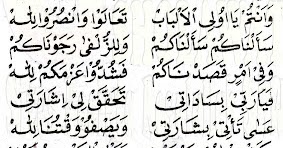 وَأَنْتُمْ يَا أُولِي الْأَلْبَابْ تَعَالَوْا وَانْصُرُوا لِلّٰه
سَأَلْنَاكُمْ سَأَلْنَاكُمْ وَلِلزُّلْفَى رَجَوْنَاكُمْ
وَفِي أَمْرٍ قَصَدْنَاكُمْ فَشُدُّوا عَزْمَكُمْ لِلّٰه
فَيَارَبِّي بِسَادَاتِي تَحَقَّقْ لِي إِشَارَتِي
عَسَى تَأْتِي بِشَارَتِي وَيَصْفُو وَقْتُنَا لِلّٰه